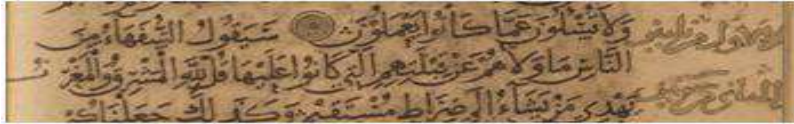 ولا تسئلون عما كانوا يعملون سيقول السفهاء من
الناس ما ولاهم عن قبلتهم التي كانوا عليها قل لله المشرق والمغرب
يهدي من يشاء إلى صراط مستقيم وكذلك جعلناكم